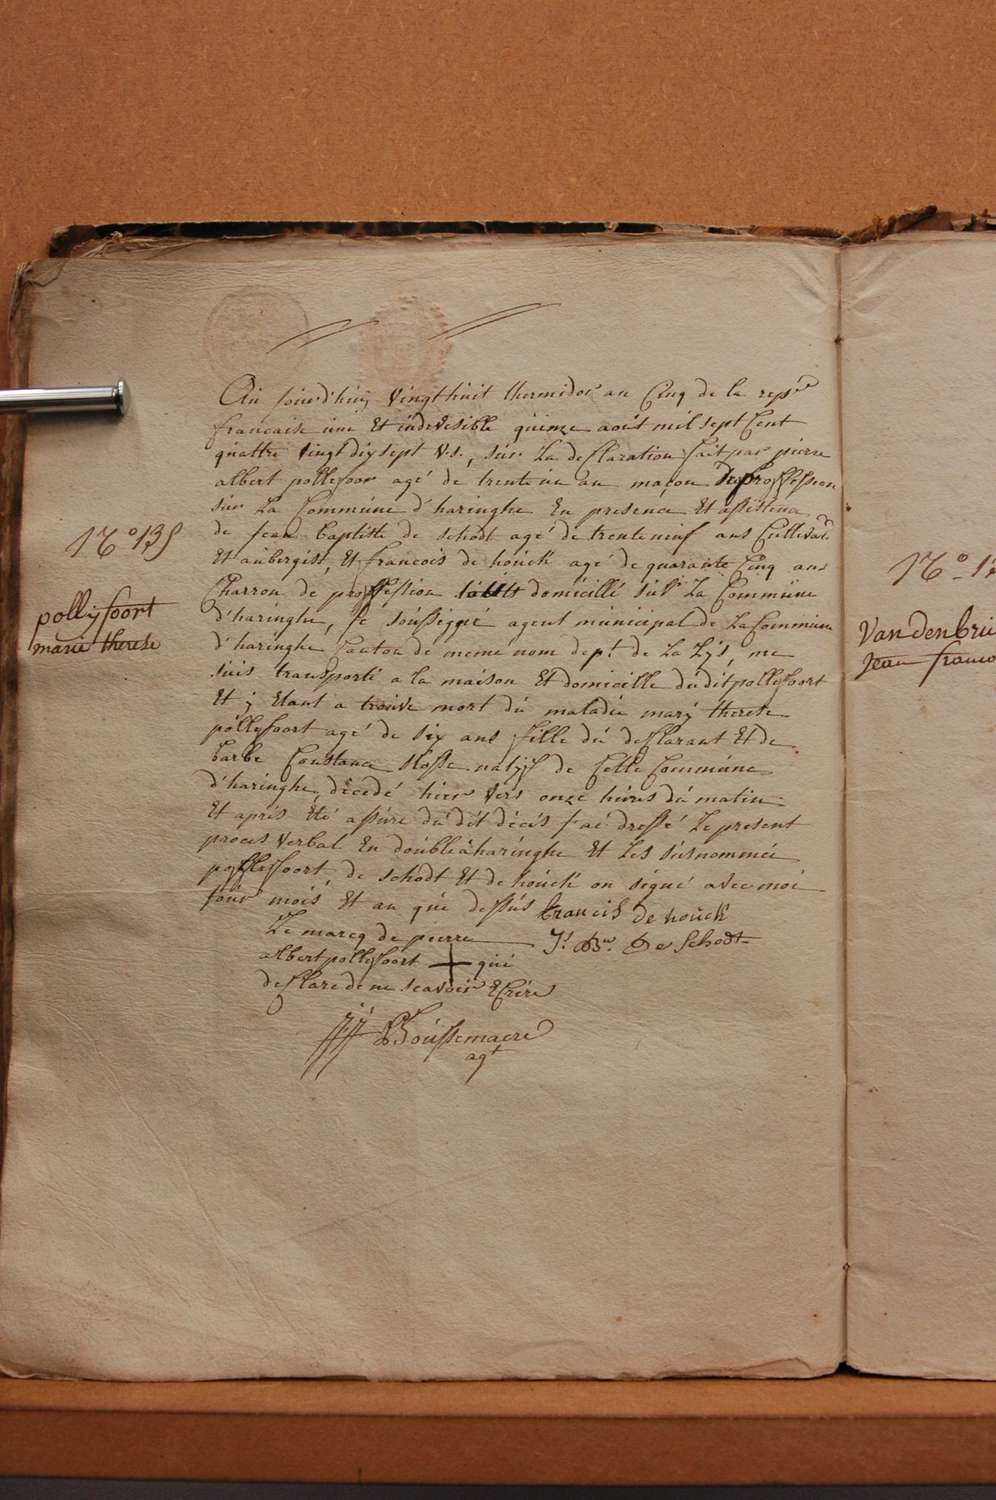 Au jourd'huij vingt huit thermidor au Cinq de la repe
francaise une Et indivisible quinze aout mil sept Cent
quattre vingt dix sept v.s., sur La desclaration fait par pierre
albert pollefoor agé de trente un an maçon De proffession
sur La Commune d'haringhe En presence Et assistence
de jean baptiste de schodt agé de trente neuf ans Cultivatr
Et aubergist, Et francois de houck agé de quarante Cinq ans
Charron de proffession domicillé sur La Commune
d'haringhe, je soussigné agent municipal de La Commune
d'haringhe Canton de meme nom dept. de La Lys, me
suis transporté a la maison Et domicille du dit polleffoort
Et y Etant a trouve mort du maladie marij therese
polleffoort agé de six ans fille du desclarant Et de
barbe Constance natijf de Cette Commune
d'haringhe, décedé hier vers onze heures du matin
Et aprés Eté assure du dit décès j'ai dressé Le present
proces verbal En double a haringhe Et Les susnommée
polleffoort de schodt Et de houck on signé avec moi
jour mois Et an que dessus francis de houck
Le marcq de pierre J: Bte. De Schodt
albert polleffoort + qui
desclare de ne scavoir Ecrire
Soussemaere
agt
No 135
pollijfoort
marie therese
No - 13
Van den bri
Jean franco